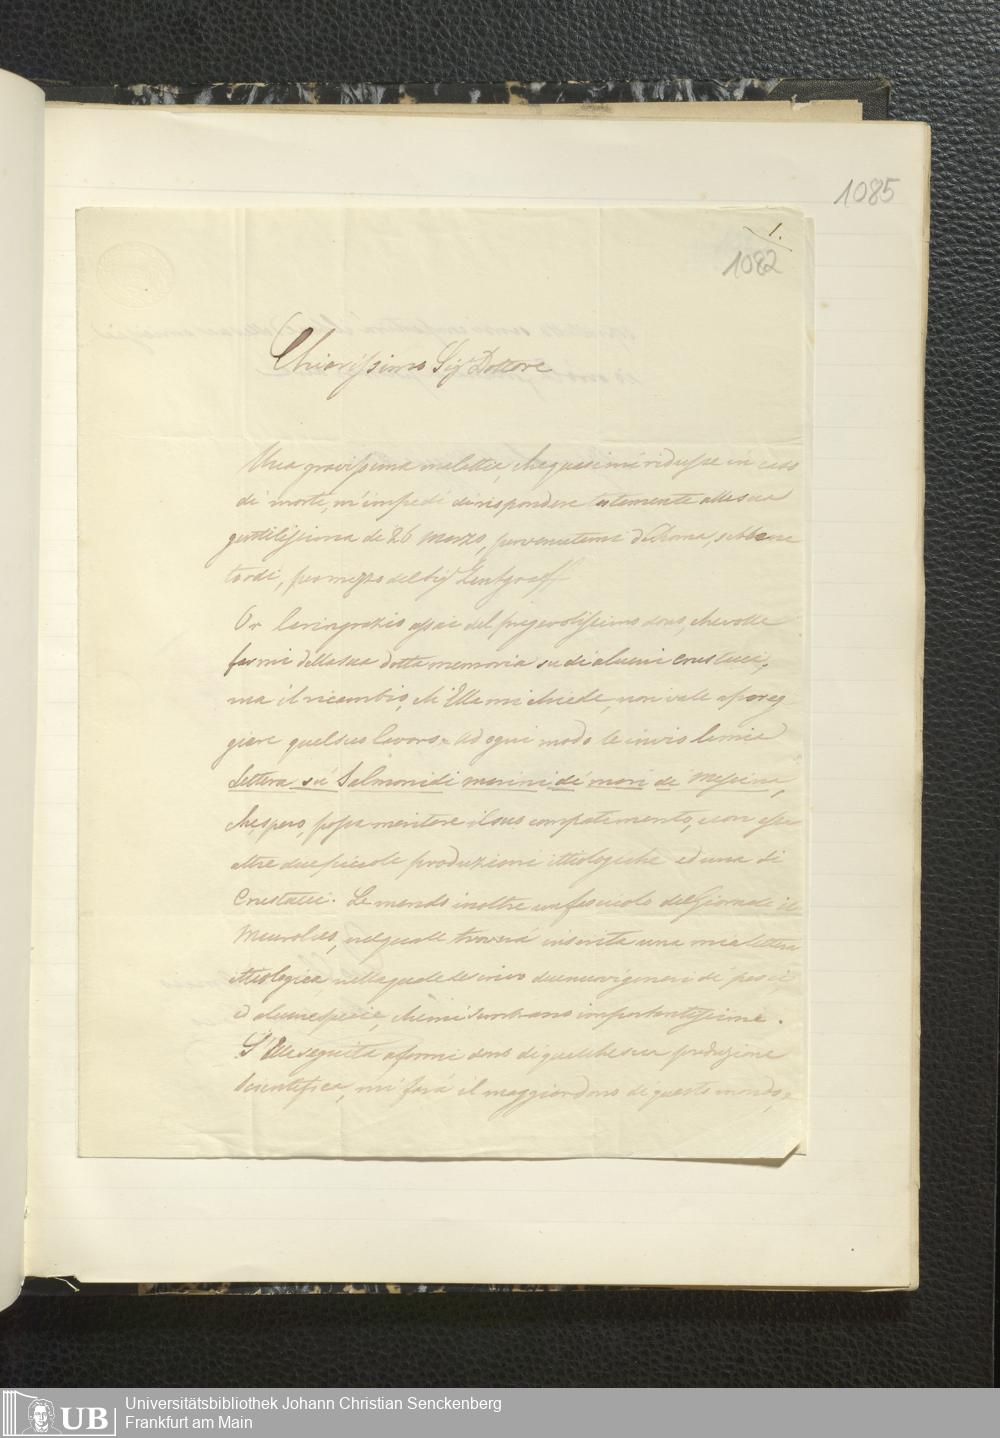 1085
1.
1082
Chiarissimo Sig.r Dottore
Una gravissima malattia, che quasi mi ridusse in caso
di morte, m'impedì di rispondere alla sua
gentilissima de' 26 Marzo, pervenutami di Roma, sebbene
tardi, per mezzo del Sig.r
Or la ringrazio assai del pregevolissimo dono, che volle
farmi della sua dotta memoria su di alcuni crustacei,
ma il ricambio, ch'Ella mi chiede, non vale a pareg
giare quel suo lavoro. Ad ogni modo le invio la mia
Lettera su' Salmonidi marini de' mari di Messina,
che, spero, possa meritare il suo compatimento, e con essa
altre due piccole produzioni ittiologiche ed una di
Crustacei. Le mando inoltre un fascicolo del Giornale il
Maurolico, nel quale troverà inserita una mia lettera
ittiologica, nella quale descrivo due nuovi generi di pesci,
ed alcune specie, che mi sembrano importantissime.
S'Ella seguita a farmi dono di qualche sua produzione
Scientifica, mi farà il maggior dono di questo mondo,
Universitätsbibliothek Johann Christian Senckenberg
Frankfurt am Main
UB